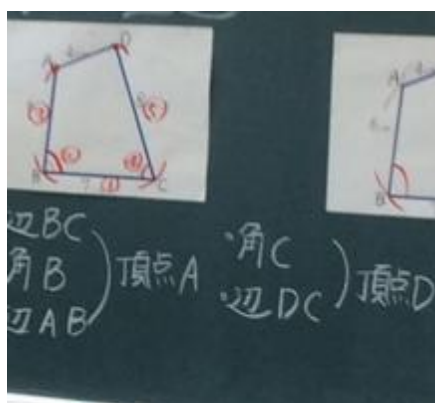 A
D
③
⑤
②
④
B
①
C
A
B
辺BC
角B
辺AB
頂点A
・角C
・辺DC
頂点D